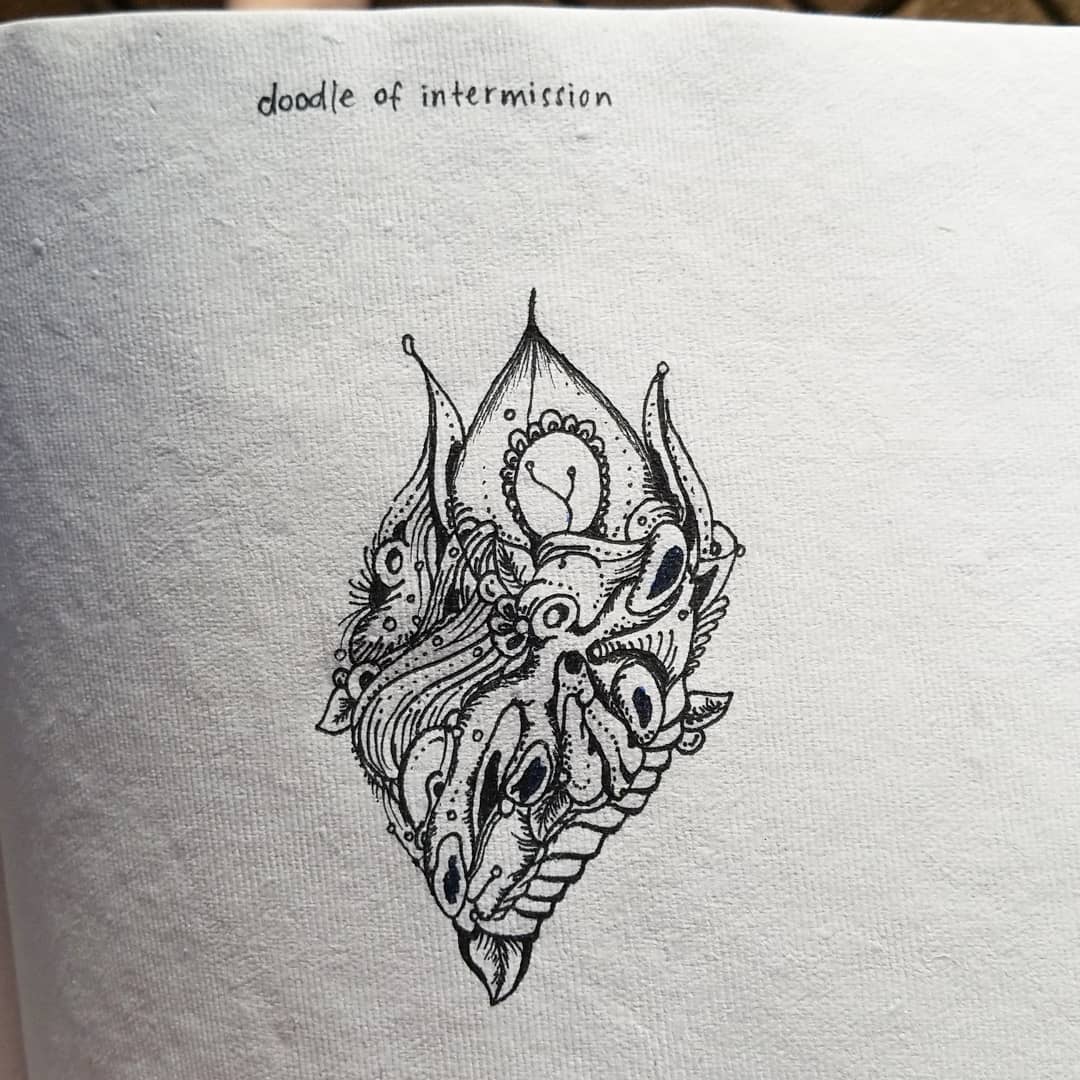 doodle of intermission